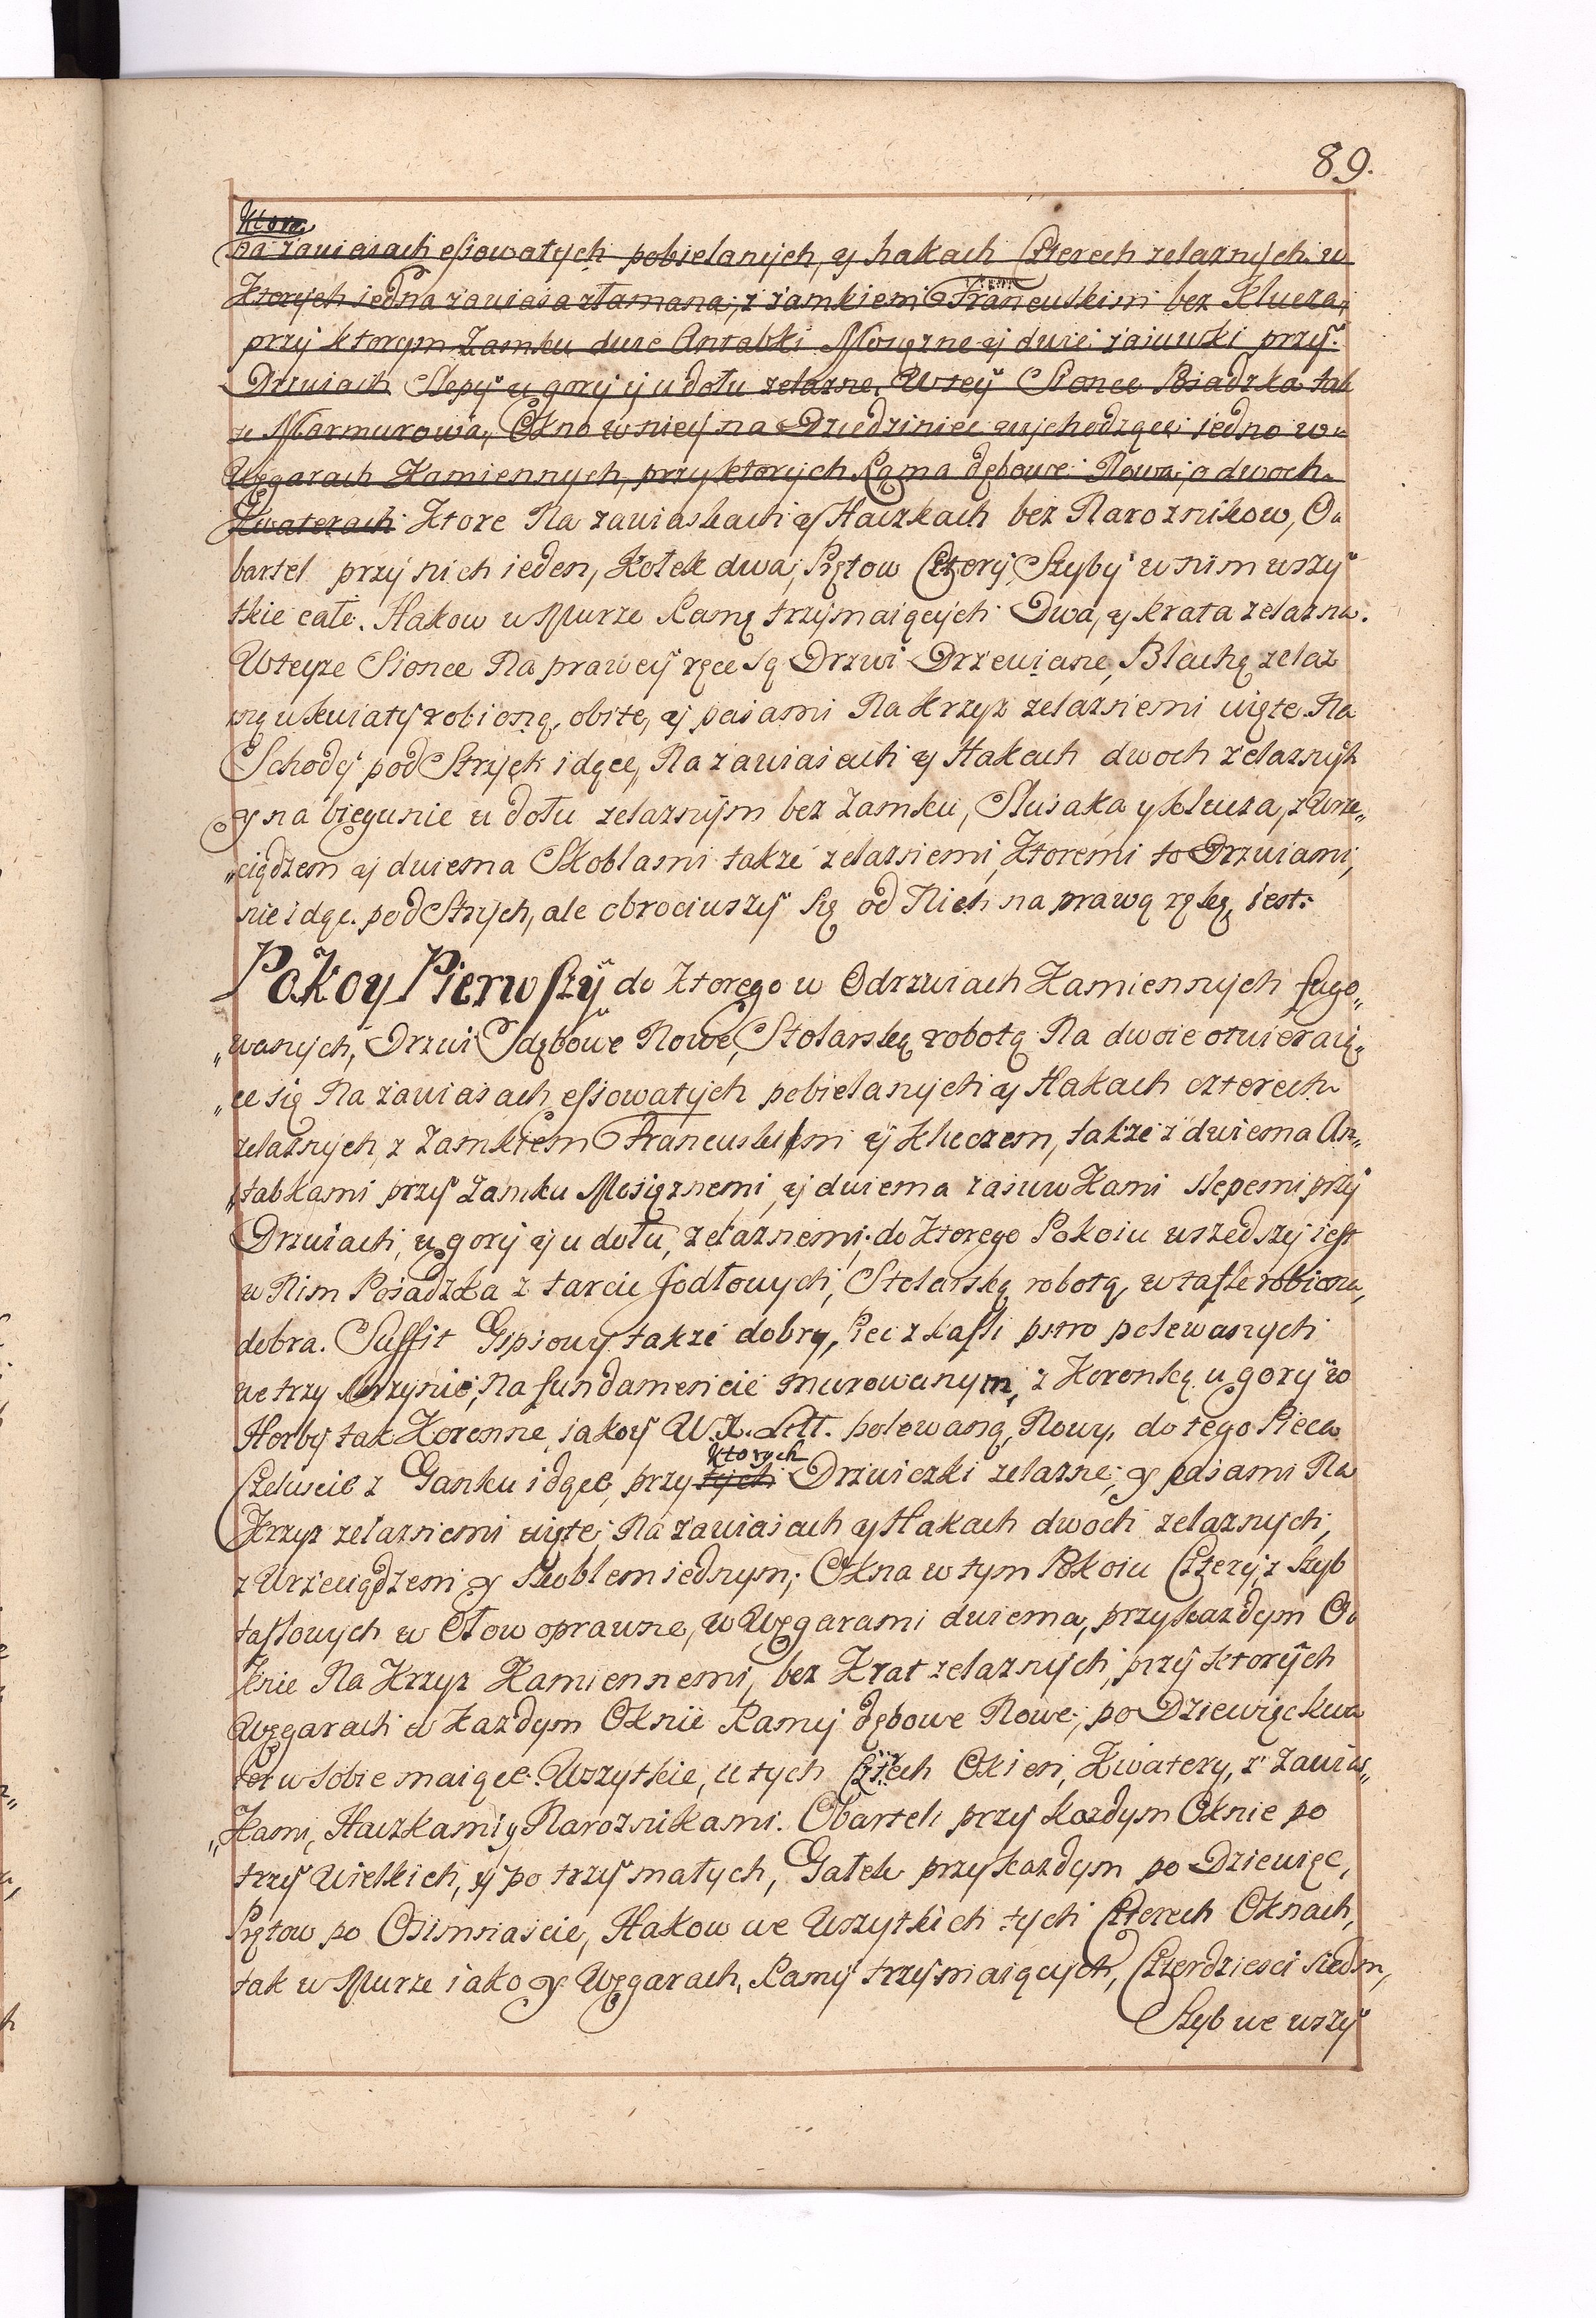 89.
Ktore
na zawiasach essowatych pobielanych, y hakach Czterech zelaznych w
Ktorych iedna zawiasa złamana, z zamkiem Francuskim bez Klucza,
przy ktorym Zamku dwie Antabki Mosięzne y dwie zasuwki przy
Drzwiach Slepÿ u gory y u dołu zelazne. W teÿ Sionce Posadzka tak
ze Marmurowa, Okno w niey na Dziedziniec wychodzące iedno w
Węgarach Kamiennych, przy ktorych Rama dębowe Nowa, o dwoch
Kwaterach Ktore Na zawiaskach y Haczkach bez Naroznikow, O
bartel przy nich ieden, Kołek dwa, Prętow Cztery, Szyby w nim wszy
tkie całe. Hakow w Murze Ramę trzymaiących Dwa, y krata zelazna.
W teyze Sionce Na prawey ręce są Drzwi Drzewiane, Blachą zelaz
ną w kwiaty robioną, obite, y pasami Na krzyz zelaznemi uięte Na
Schody pod Strych idące, Na zawiasach y Hakach dwoch zelaznych
y na biegunie u dołu zelaznym bez Zamku, Slusaka y klucza, z Wrze„
„ciądzem y dwiema Skoblami takze zelaznemi, Ktoremi to Drzwiami,
nie idąc pod Strych, ale obrociwszy się od Nich na prawą rękę, iest:
Pokoy Pierwszÿ do Ktorego w Odrzwiach Kamiennych fugo„
„wanych, Drzwi Sdębowe Nowe, Stolarską robotą Na dwoie otwieraią„
„ce się Na zawiasach essowatych pobielanych y Hakach czterech
zelaznych, z Zamkiem Francuskim y kluczem, takze z dwiema An„
„tabkami przy Zamku Mosięznemi, y dwiema zasuwkami slepemi przy
Drzwiach, u gory y u dołu, zelaznemi; do Ktorego Pokoiu wszedszy iest
w Nim Posadzka z tarcic Jodłowych, Stolarską robotą, w tafle robiona,
dobra. Suffit Gipsowy takze dobry, Piec z kafli pstro polewanych
we trzy Skrzynie, Na fundamencie murowanym, z Koronką u gory w
Herby tak Koronne, iako y W. X. Litt. polewaną, Nowy, do tego Pieca
Czeluscie z Ganku idące, przy tych ktorych Drzwiczki zelazne, y pasami Na
Krzyz zelaznemi uięte, Na zawiasach y Hakach dwoch zelaznych,
z Wrzeciądzem y Skoblem iednym; Okna w tym Pokoiu Cztery, z Szyb
taflowych w Ołow oprawne, w Węgarami dwiema, przy kazdym O
knie Na Krzyz Kamiennemi, bez Krat zelaznych, przy ktorych
Węgarach w Kazdym Oknie Ramy dębowe Nowe, po Dziewięc kwa
ter w sobie maiące. Wszytkie, u tych Cztech Okien, Kwatery, z Zawias„
„Kami, Haczkami y Naroznikami. Obartel przy kazdym Oknie po
trzy Wielkich, y po trzy małych, Gałek przy kazdym po Dziewięc,
Prętow po Osimnascie, Hakow we Wszytkich tych Czterech Oknach,
tak w Murze iako y Węgarach, Ramy trzymaiących, Czterdziesci siedm,
Szyb we wszy